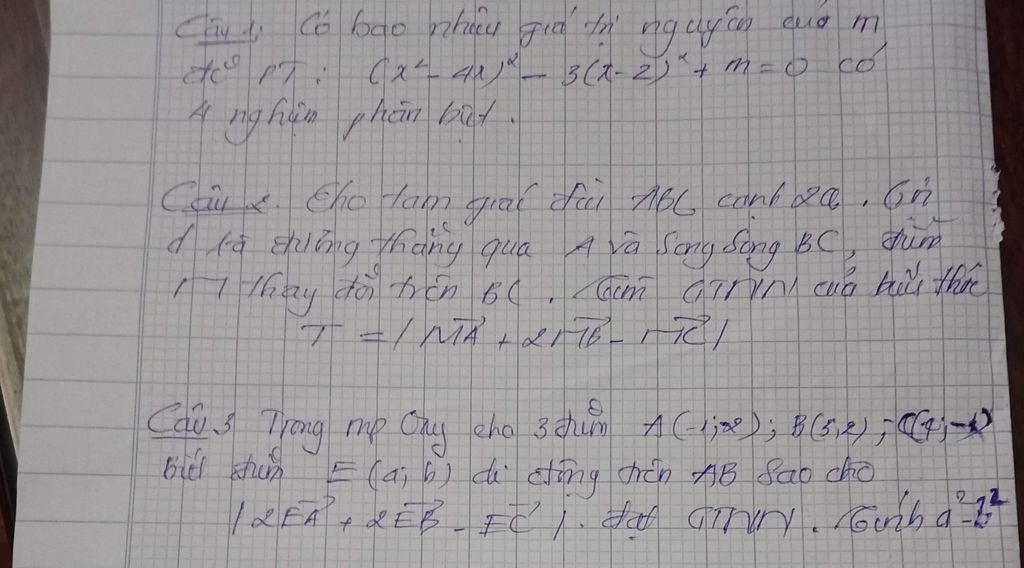 Câu 1: Có bao nhiêu giá trị nguyên của m
để PT: (x² - 4x)² - 3(x-2)² + m = 0 có
4 nghiệm phân biệt.
Câu 2. Cho tam giác đều ABC cạnh 2a. Gọi
d là đường thẳng qua A và song song BC, điểm
M thay đổi trên BC. Tìm GTNN của biểu thức
T = |MA + 2MB - MC|
Câu 3 Trong mp Oxy cho 3 điểm A(-1;2); B(3;2); C(4;-1)
Biết điểm E(a;b) di động trên AB sao cho
|2EA + 2EB - EC|. đạt GTNN. Tính a² - b²